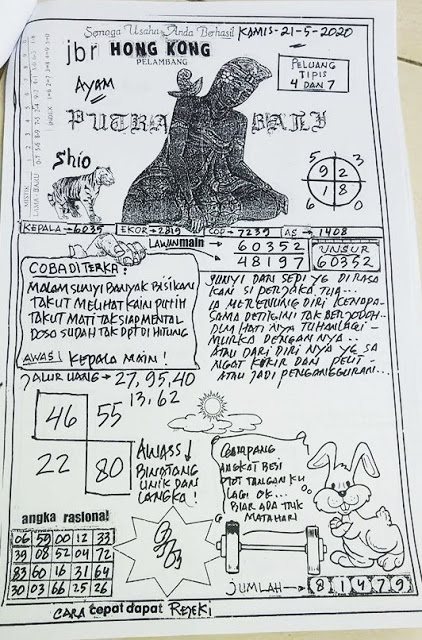 Semoga Usaha Anda Berhasil
KAMIS-21-5-2020
jbr HONG KONG
PELAMBANG
AYAM
PELUANG
TIPIS
4 DAN 7
PUTRA BALI
Shio
5 3
9 2
1 8
6 0
MISTIK
LAMA-BARU
INDEX
KEPALA-6035
EKOR-2819
COP-7239
AS-1408
LAWAN main
60352
48197
UNSUR
60352
COBA DITERKA:
MALAM SUNYI BANYAK BISIKAN
TAKUT MELIHAT KAIN PUTIH
TAKUT MATI TAK SIAP MENTAL
DOSO SUDAH TAK DPT DI HITUNG
AWAS! KEPALA MAIN!
SUNYI DAN SEDI YG DI RASA
KAN SI PERJAKA TUA...
IA MERENUNG DIRI KENAPA-
SAMA DETIGINI TAK BERJODOH..
DLM HATI NYA TUHAN LAGI-
MURKA DENGAN NYA..
ATAU DARI DIRI NYA YG SA
NGAT KIKIR DAN PELIT-
ATAU JADI PENGANGGURAN...
JALUR UANG → 27, 95, 40
13, 62
46 55
22 80
AWASS
BINATANG
UNIK DAN
LANGKA!
GAMPANG
ANGKAT BESI
OTOT TANGAN KU
LAGI OK...
BIAR ADA TIIK
MATAHARI
angka rasional
06 59 00 12 33
39 08 52 04 72
83 60 16 31 64
30 03 66 25 26
JUMLAH → 8 1 4 7 9
CARA tepat dapat REJEKI